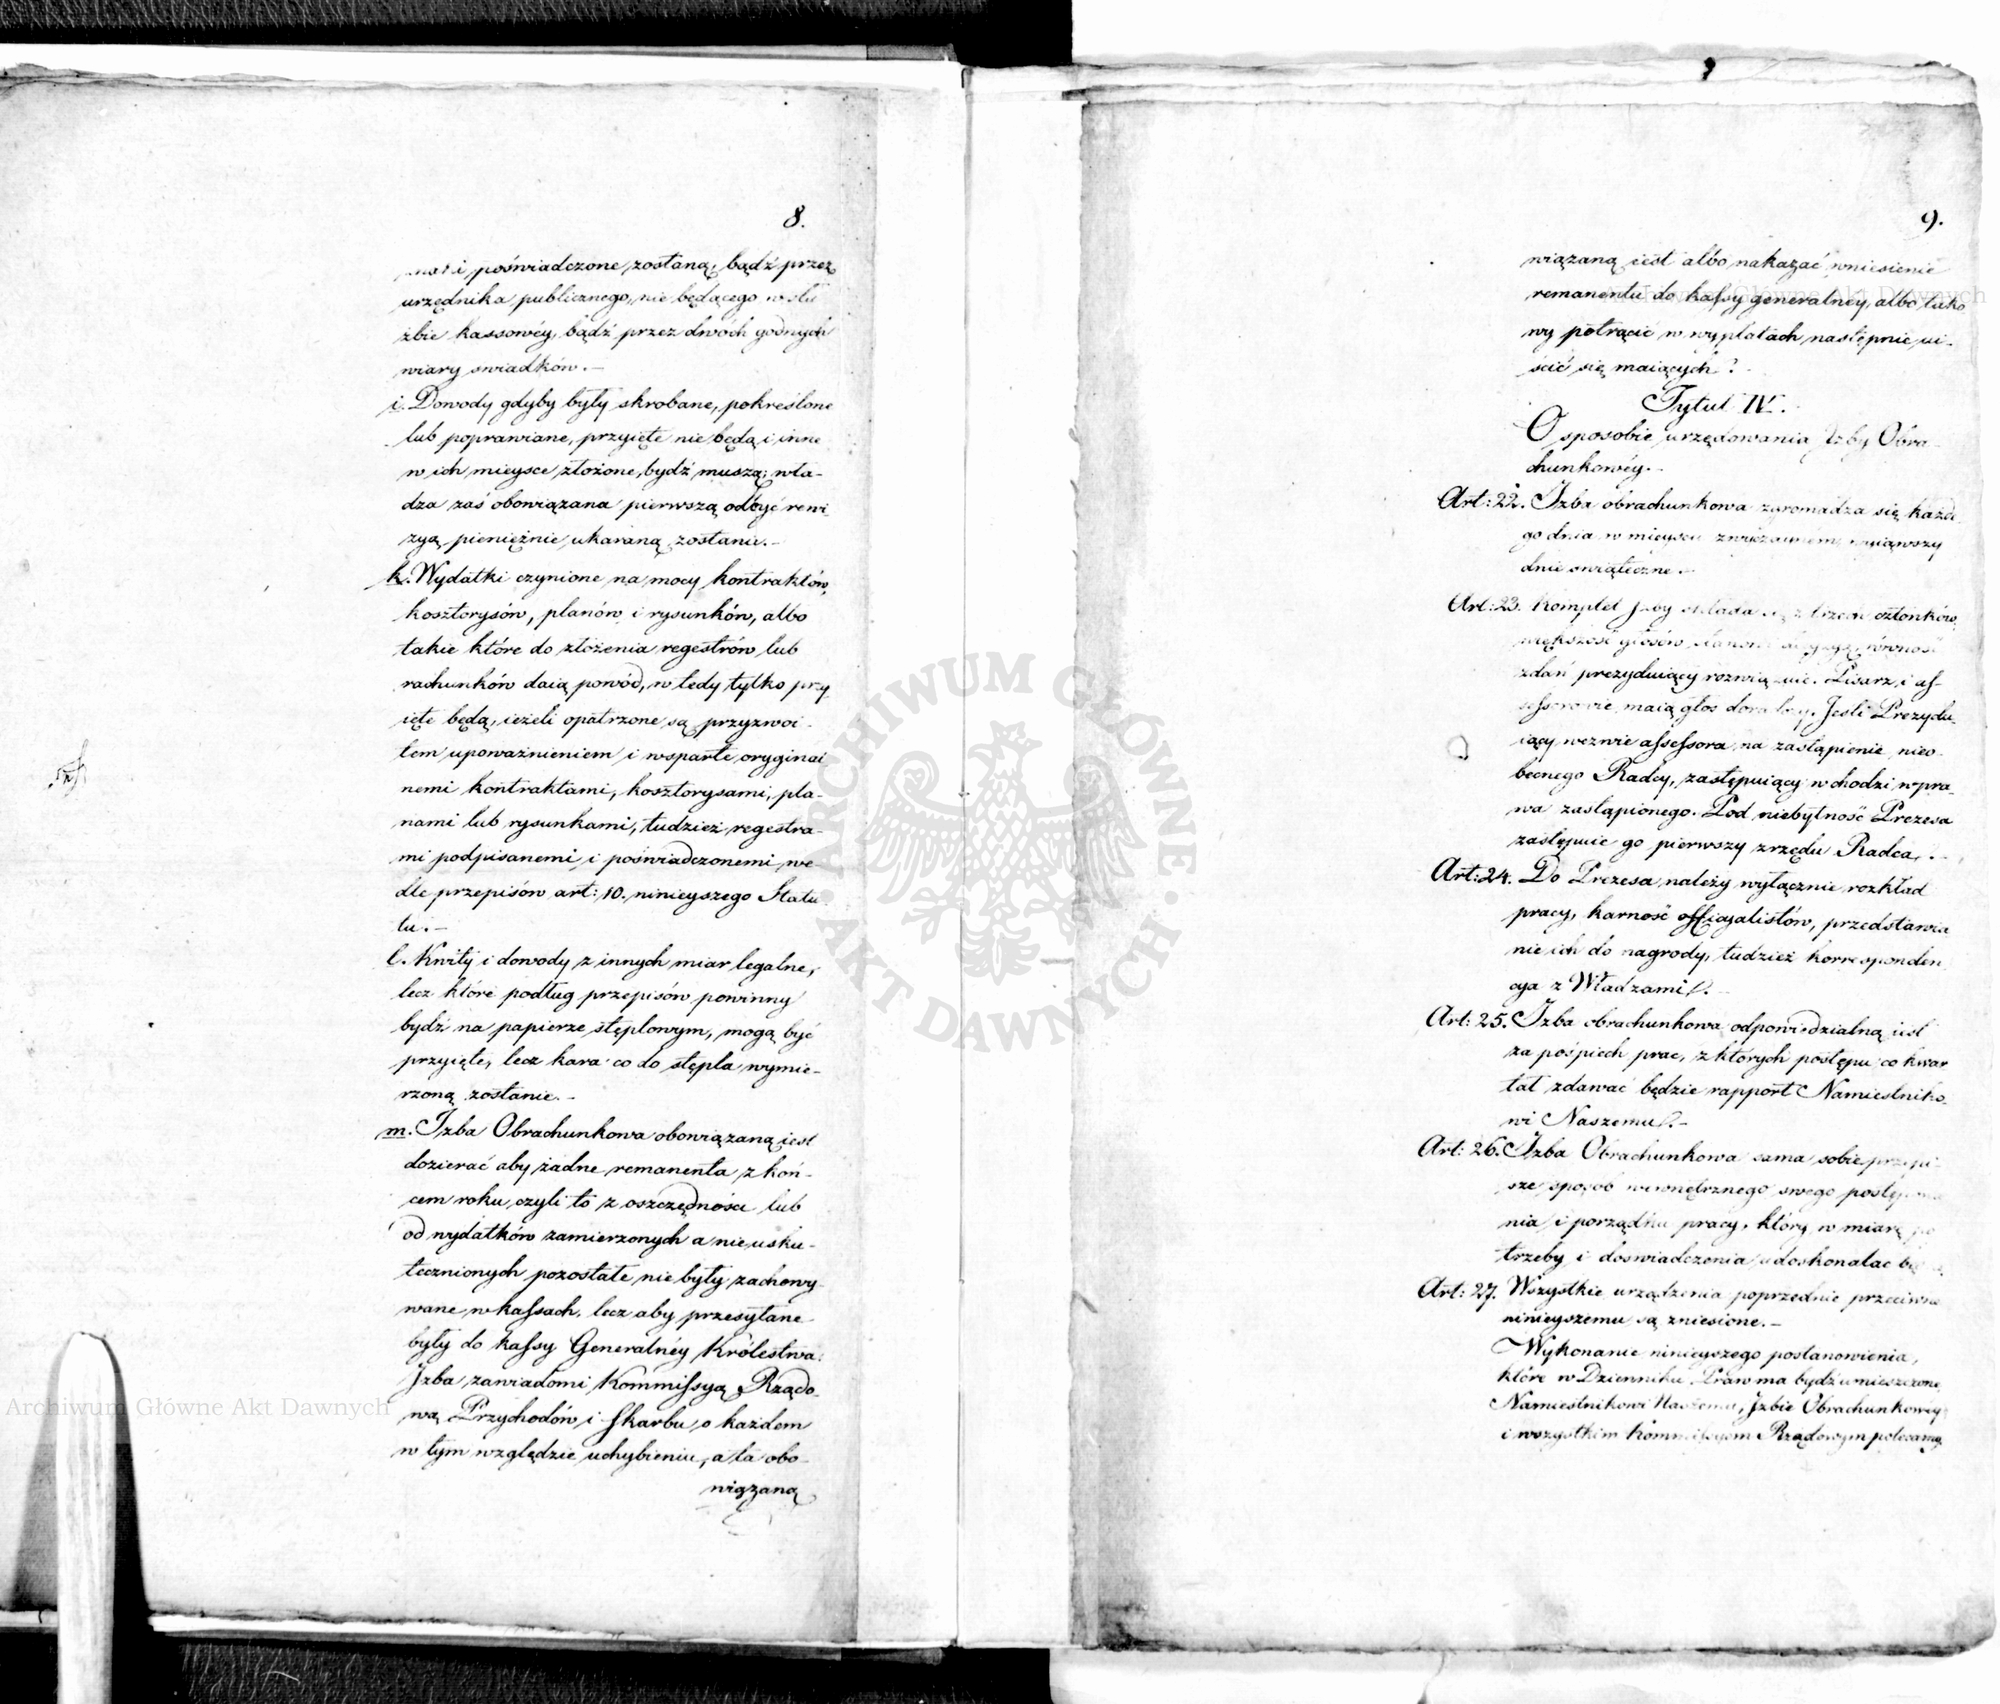 8.
i poświadczone zostaną, bądź przez
urzędnika publicznego, nie będącego w słu
żbie kassowéy, bądź przez dwóch godnych
wiary swiadków. —
i. Dowody gdyby były skrobane, pokreślone
lub poprawiane, przyięte nie będą i inne
w ich mieysce złożone, bydź muszą; wła-
dza zaś obowiązana pierwszą odbyć rewi
zyą pieniężnie ukaraną zostanie. —
k. Wydatki czynione na mocy kontraktów,
kosztorysów, planów i rysunków, albo
takie które do złożenia regestrów lub
rachunków daią powód, w tedy tylko przy
ięte będą, ieżeli opatrzone są przyzwoi-
tem upoważnieniem i wsparte oryginal
nemi kontraktami, kosztorysami, pla-
nami lub rysunkami, tudzież regestra-
mi podpisanemi i poświadczonemi we
dle przepisów art: 10. ninieyszego Statu
tu. —
l. Kwity i dowody z innych miar legalne,
lecz które podług przepisów powinny
bydź na papierze stęplowym, mogą być
przyięte, lecz kara co do stępla wymie-
rzoną zostanie. —
m. Izba Obrachunkowa obowiązaną iest
dozierać aby żadne remanenta z koń-
cem roku czyli to z oszczędności lub
od wydatków zamierzonych a nie usku-
tecznionych pozostałe nie były zachowy-
wane w kassach, lecz aby przesyłane
były do kassy Generalnéy Królestwa.
Izba zawiadomi Kommissyą Rządo-
wą Przychodów i Skarbu o każdem
w tym względzie uchybieniu, a ta obo-
wiązaną
9.
wiązaną iest albo nakazać wniesienie
remanentu do kassy generalney, albo tako
wy potrącić w wypłatach nastepnie ui-
ścić się maiących.
Tytuł IV.
O sposobie urzędowania Izby Obra-
chunkowéy. —
Art: 22. Izba obrachunkowa zgromadza się każde
go dnia w mieyscu wyiąwszy
dnie swiąteczne. —
Art: 23. Komplet Izby składa się z trzech członków,
większość głosów równość
zdań prezyduiący rozwiązuie. Pisarz i as-
sessorowie maią głos doradczy. Jeśli Prezydu-
iący wezwie assessora na zastąpienie nieo-
becnego Radcy, zastępuiący wchodzi w pra-
wa zastąpionego. Pod niebytność Prezesa
zastępuie go pierwszy z rzędu Radca. —
Art: 24. Do Prezesa należy wyłącznie rozkład
pracy, karność officyalistów, przedstawia
nie ich do nagrody, tudzież korresponden
cya z Władzami. —
Art: 25. Izba obrachunkowa odpowiedzialną iest
za pośpiech prac, z których postępu co kwar
tał zdawać będzie rapport Namiestniko-
wi Naszemu. —
Art: 26. Izba Obrachunkowa sama sobie przepi-
sze sposób wewnętrznego swego postępowa
nia i porządku pracy, który w miarę po
trzeby i doswiadczenia udoskonalać
Art: 27. Wszystkie urządzenia poprzednie przeciwne
ninieyszemu są zniesione. —
Wykonanie ninieyszego postanowienia,
które w Dzienniku Praw ma bydź umieszczone,
Namiestnikowi Naszemu, Izbie Obrachunkowey
i wszystkim Kommissyom Rządowym polecamy
ARCHIWUM GŁÓWNE
AKT DAWNYCH
Archiwum Główne Akt Dawnych
Archiwum Główne Akt Dawnych